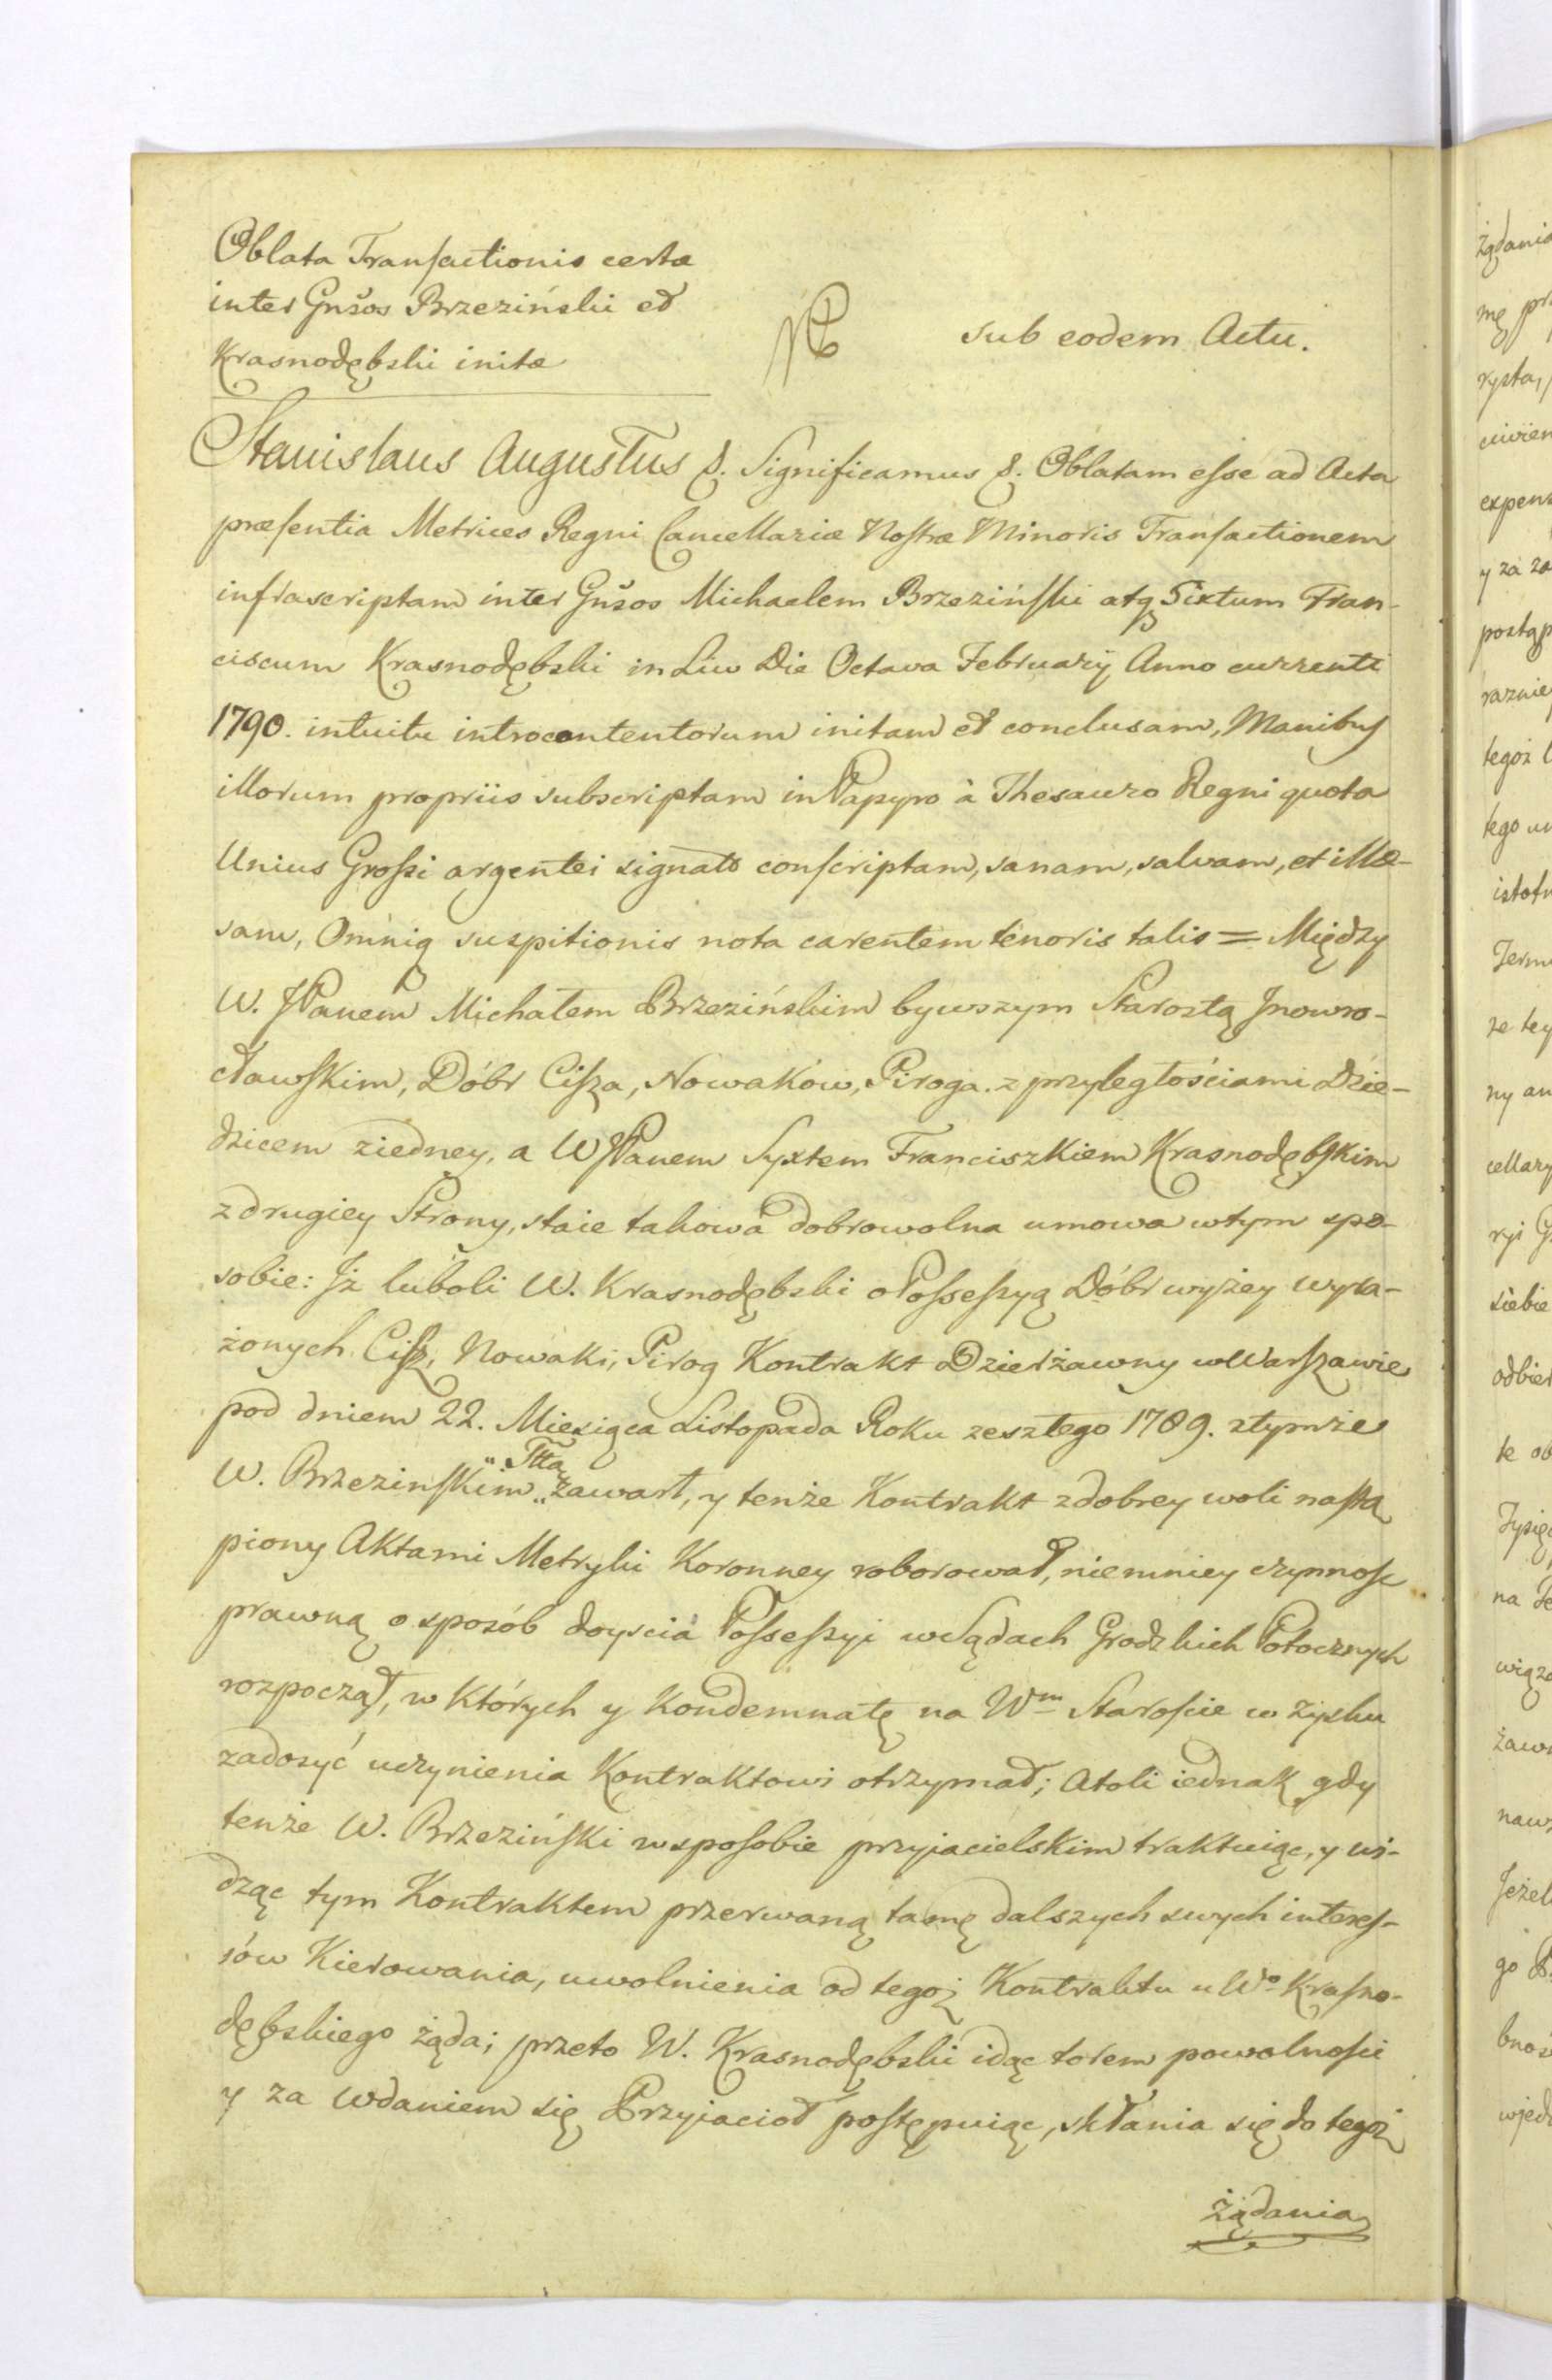 Oblata Transactionis certæ
inter Gn̄sos Brzezinski et
Krasnodębski initæ
sub eodem Actu.
Stanislaus Augustus &. Significamus &. Oblatam esse ad Acta
præsentia Metrices Regni Cancellariæ Nostræ Minoris Transactionem
infrascriptam inter Gn̄sos Michaelem Brzezinski atq Sixtum Fran-
ciscum Krasnodębski in Liw Die Octava Februarij Anno currenti
1790. intuitu introcontentorum initam et conclusam, Manibus
illorum propriis subscriptam in Papyro à Thesauro Regni quota
Unius Grossi argentei signato conscriptam, sanam, salvam, et illæ-
sam, Omniq suspitionis nota carentem tenoris talis = Między
W. JPanem Michałem Brzezińskim bywszym Starostą Jnowro-
cławskim, Dóbr Cisza, Nowaków, Piroga. z przyległościami Dzie-
dzicem ziedney, a WJPanem Syxtem Franciszkiem Krasnodębskim
z drugiey Strony, staie takowa dobrowolna umowa wtym spo-
sobie: Jż luboli W. Krasnodębski o Possessyą Dóbr wyżey wyra-
żonych Cisz, Nowaki, Pirog Kontrakt Dzierżawny w Warszawie
pod dniem 22. Miesiąca Listopada Roku zeszłego 1789. ztymże
W. Brzezinskim Stta zawarł, y tenże Kontrakt zdobrey woli nastą
piony Aktami Metryki Koronney roborował, niemniey czynnosc
prawną o sposób doyscia Possessyi w Sądach Grodzkich Potocznych
rozpoczął, w Których y Kondemnatę na Wm Staroscie w zysku
zadosyć uczynienia Kontraktowi otrzymał; Atoli iednak gdy
tenże W. Brzeziński w sposobie przyjacielskim traktuiąc, y wi-
dząc tym Kontraktem przerwaną tamę dalszych swych interes-
sów Kierowania, uwolnienia od tegoż Kontraktu u Wo Krasno-
dębskiego żąda; przeto W. Krasnodębski idąc torem powolnosci
y za wdaniem się Przyjacioł postępuiąc, skłania się do tegoż
żądania